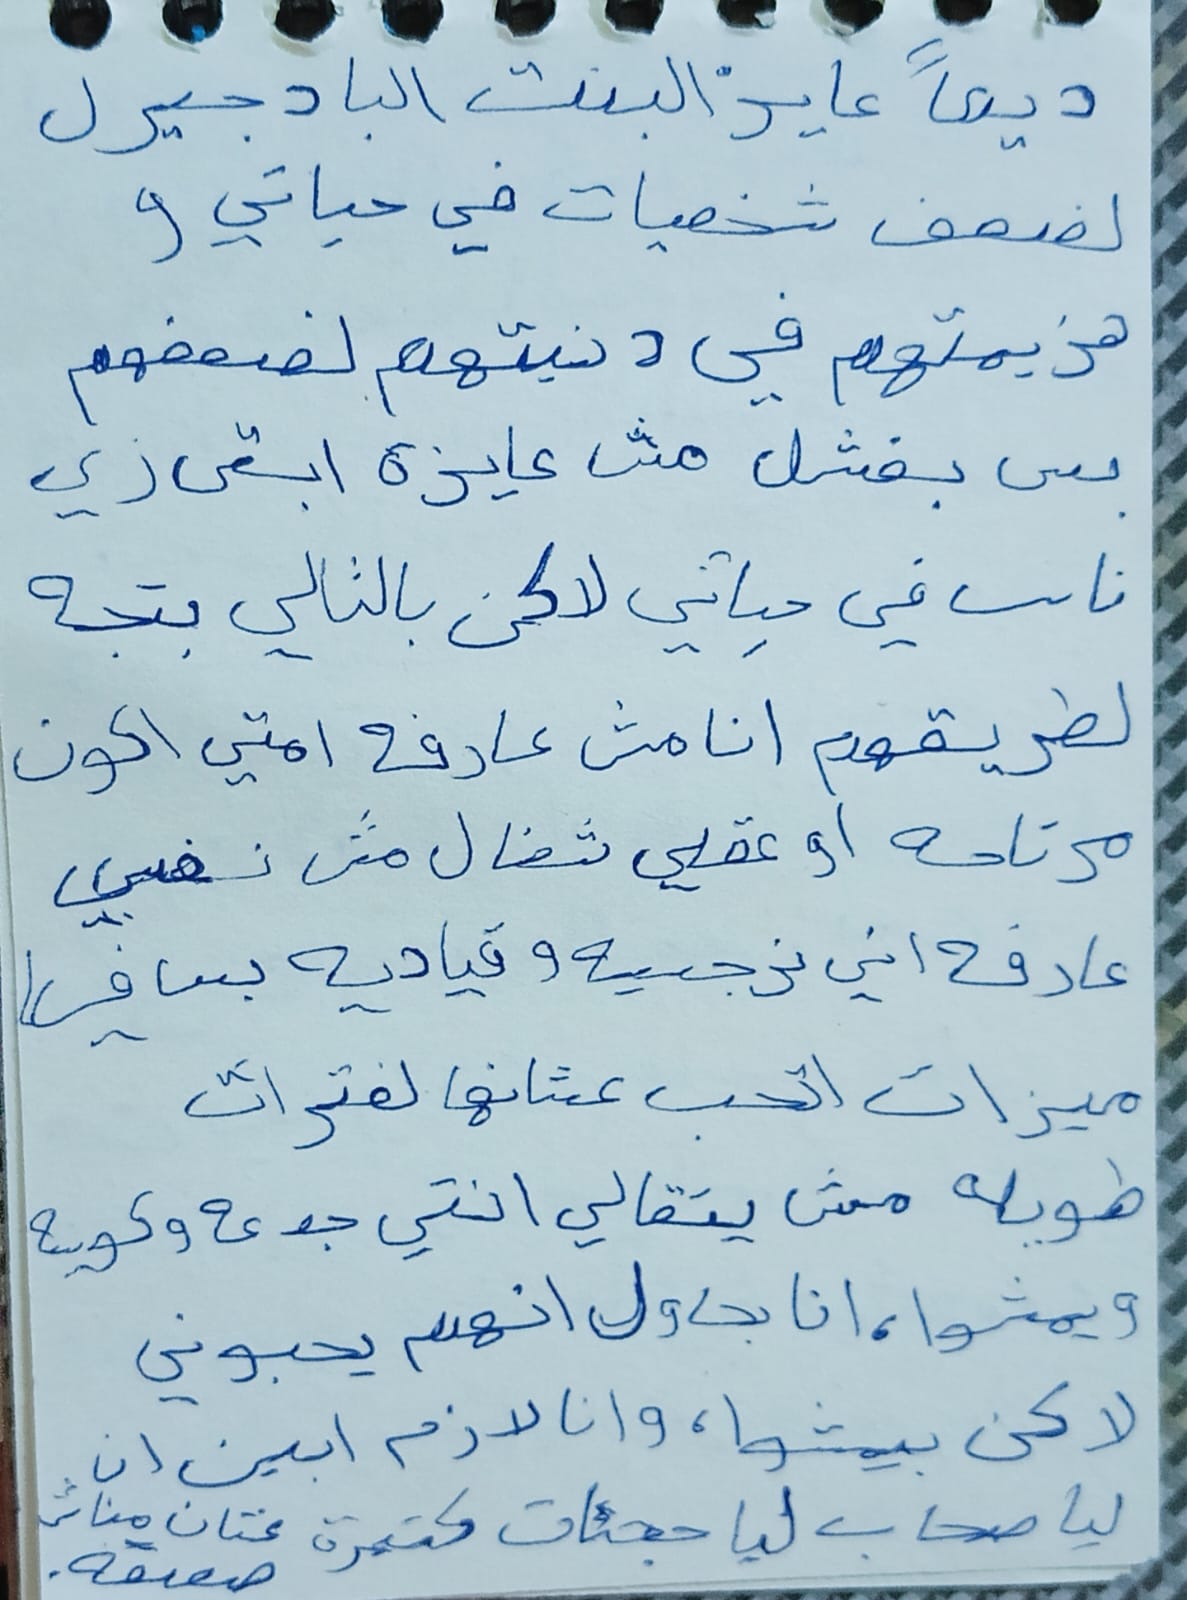 ديماً عايز البنت الباد جيرل
لضعف شخصيات في حياتي و
هزيمتهم في دنيتهم لضعفهم
بس بفشل مش عايزة ابقى زي
ناس في حياتي لاكن بالتالي بتجه
لطريقهم انا مش عارفه امتي اكون
مرتاحه او عقلي شغال مش نفسي
عارفه اني نرجسيه و قياديه بسا فيا
ميزات اتحب عشانها لفترات
طويله مش يتقالي انتي جدعه وكويسه
ويمشوا، انا بحاول انهم يحبوني
لاكن بيمشوا، وانا لازم ابين ان
ليا صحاب ليا حجات كتيرة عشان مبانش
ضعيفه.